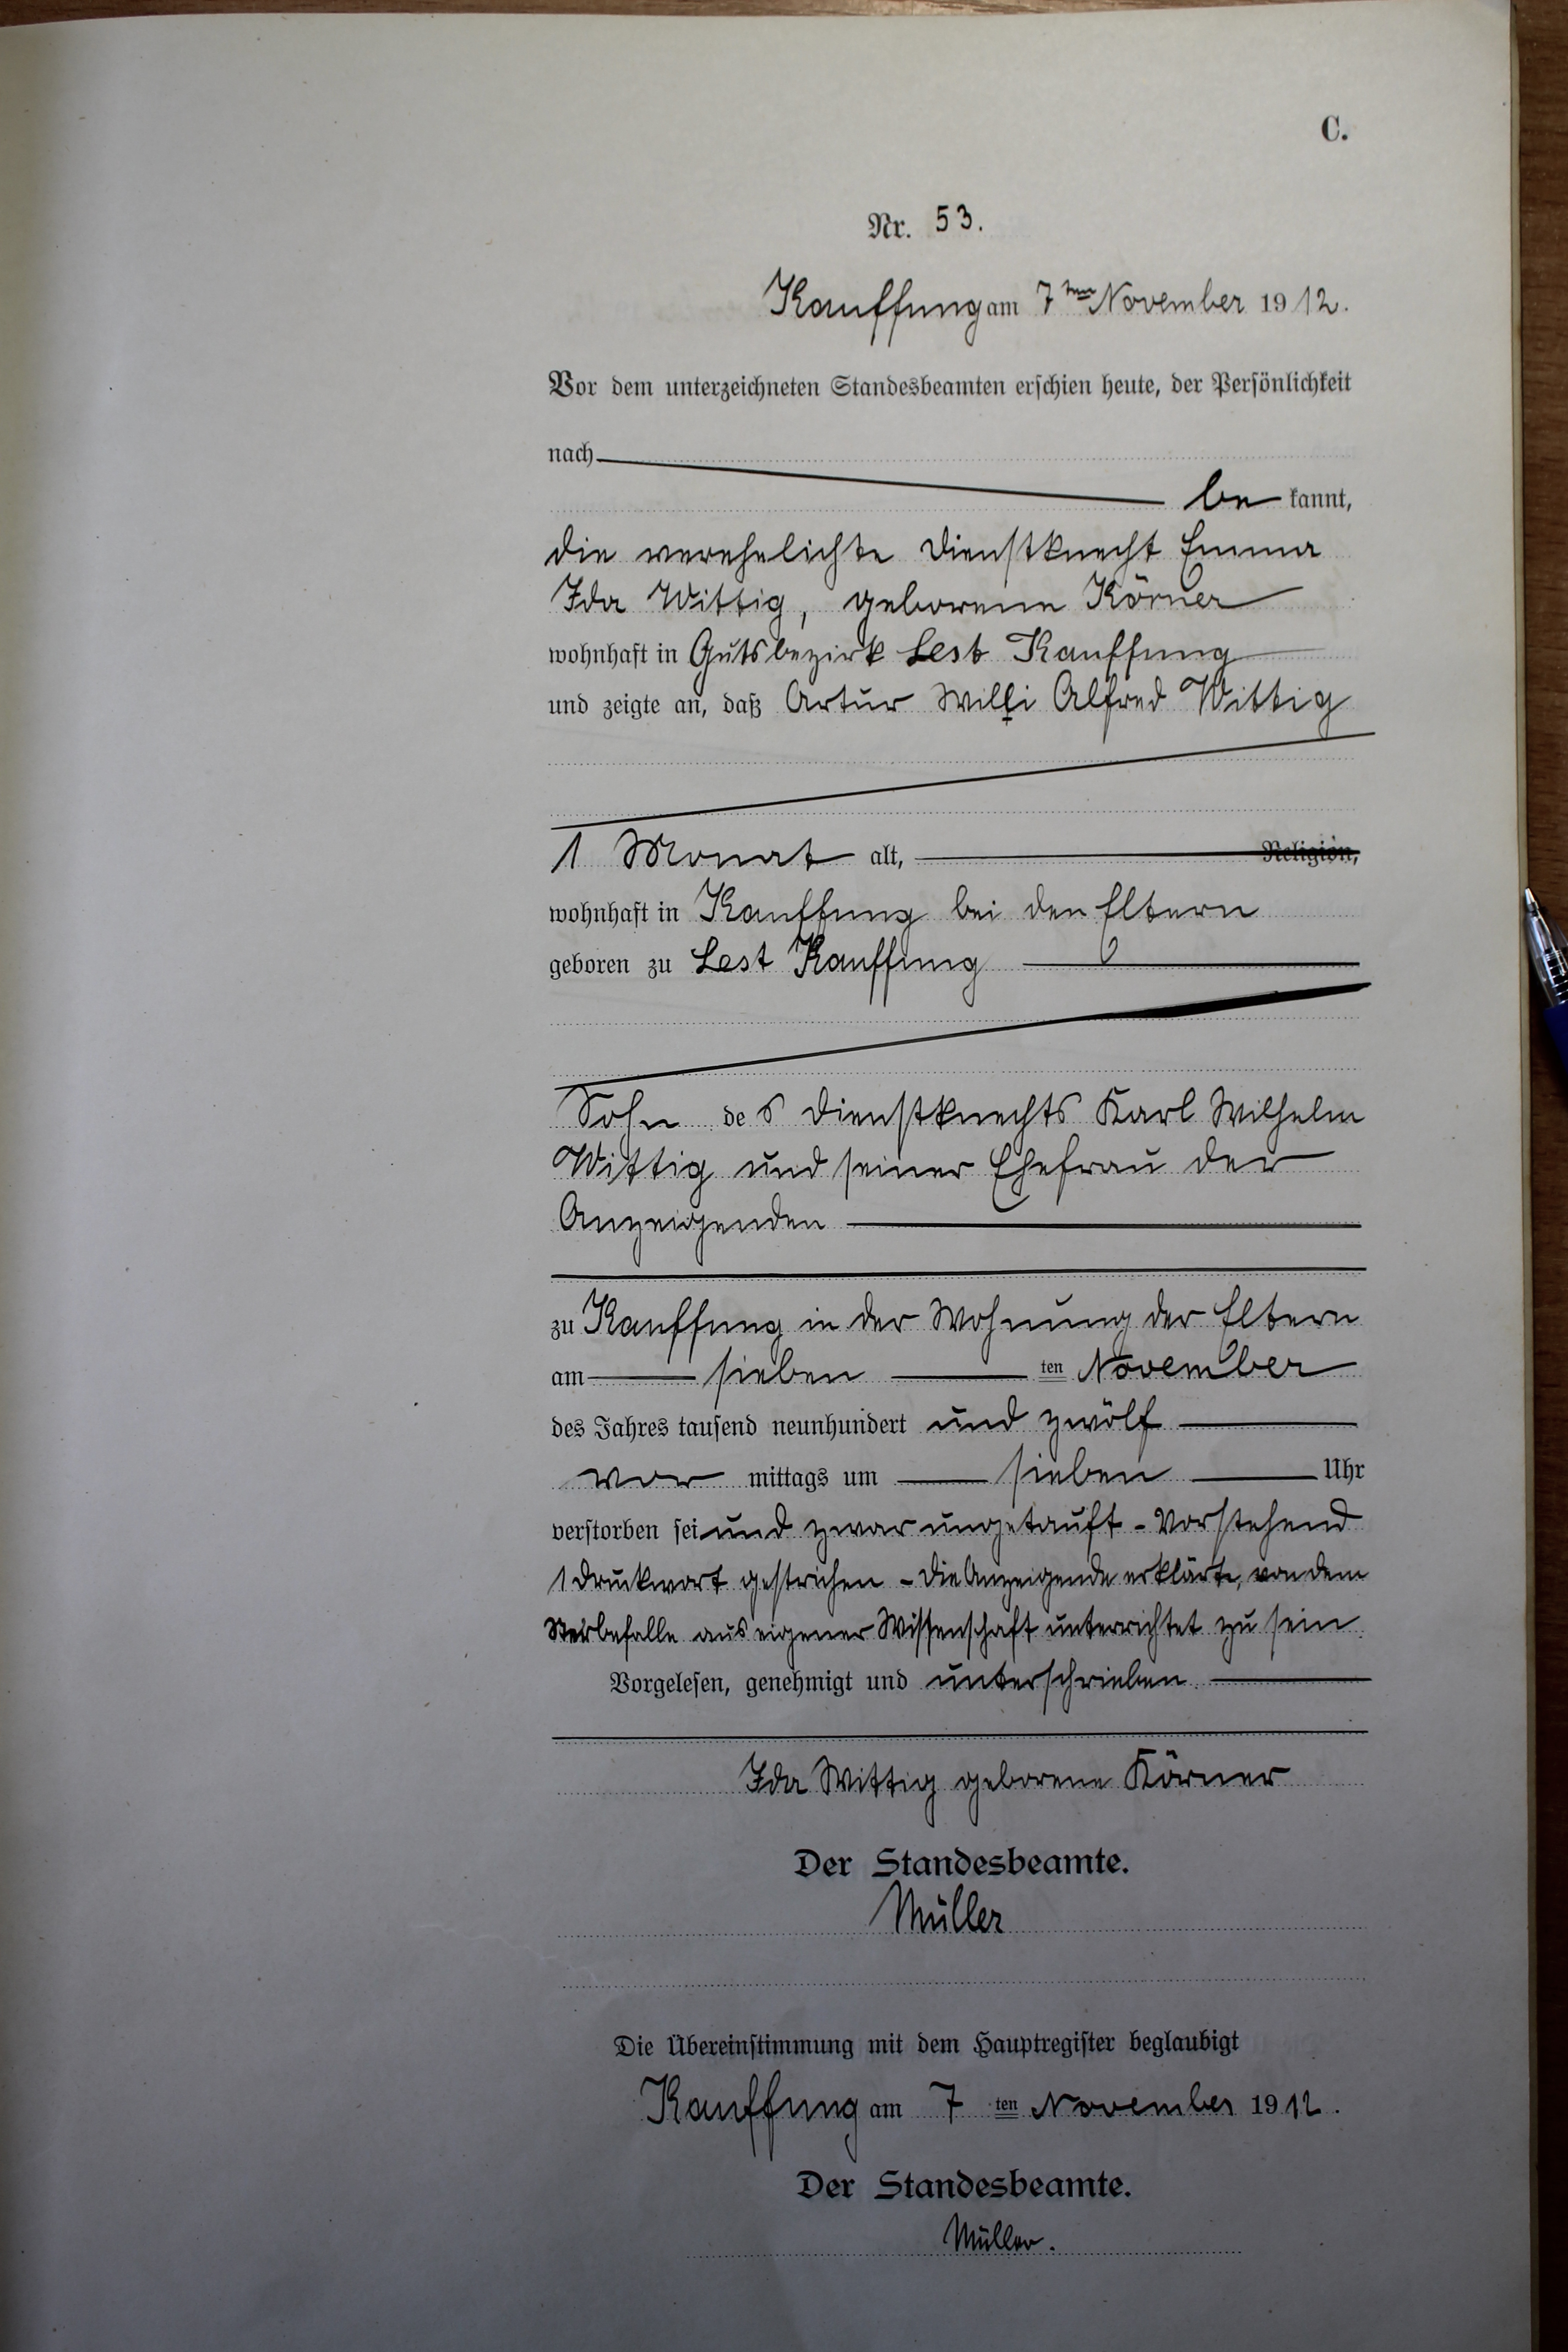 C.
Nr. 53.
Kauffung am 7ten November 1912.
Vor dem unterzeichneten Standesbeamten erschien heute, der Persönlichkeit
nach
be kannt,
die verehelichte Dienstknecht Emma
Ida Wittig, geborene Körner
wohnhaft in Gutsbezirk Lest Kauffung
und zeigte an, daß Artur Willi Alfred Wittig
1 Monat alt, Religion,
wohnhaft in Kauffung bei den Eltern
geboren zu Lest Kauffung
Sohn des Dienstknechts Karl Wilhelm
Wittig und seiner Ehefrau der
Anzeigenden
zu Kauffung in der Wohnung der Eltern
am sieben ten November
des Jahres tausend neunhundert und zwölf
vor mittags um sieben Uhr
verstorben sei und zwar ungetauft - Vorstehend
1 Druckwort gestrichen - Die Anzeigende erklärte, von dem
Sterbefalle aus eigener Wissenschaft unterrichtet zu sein.
Vorgelesen, genehmigt und unterschrieben.
Ida Wittig geborene Körner
Der Standesbeamte.
Müller
Die Übereinstimmung mit dem Hauptregister beglaubigt
Kauffung am 7 ten November 1912.
Der Standesbeamte.
Müller.